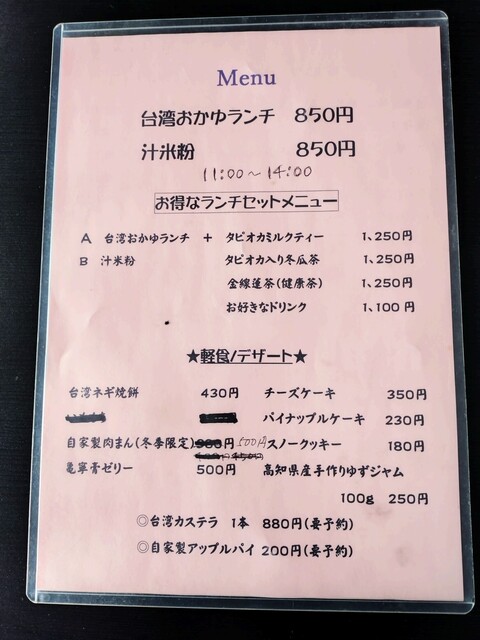 Menu
台湾おかゆランチ 850円
汁米粉 850円
11:00～14:00
お得なランチセットメニュー
A 台湾おかゆランチ ＋ タピオカミルクティー 1,250円
B 汁米粉 タピオカ入り冬瓜茶 1,250円
金線蓮茶(健康茶) 1,250円
お好きなドリンク 1,100円
★軽食/デザート★
台湾ネギ焼餅 430円 チーズケーキ 350円
パイナップルケーキ 230円
自家製肉まん(冬季限定) 円 500円 スノークッキー 180円
亀寧膏ゼリー 500円 高知県産手作りゆずジャム
100g 250円
◎台湾カステラ 1本 880円(要予約)
◎自家製アップルパイ 200円(要予約)